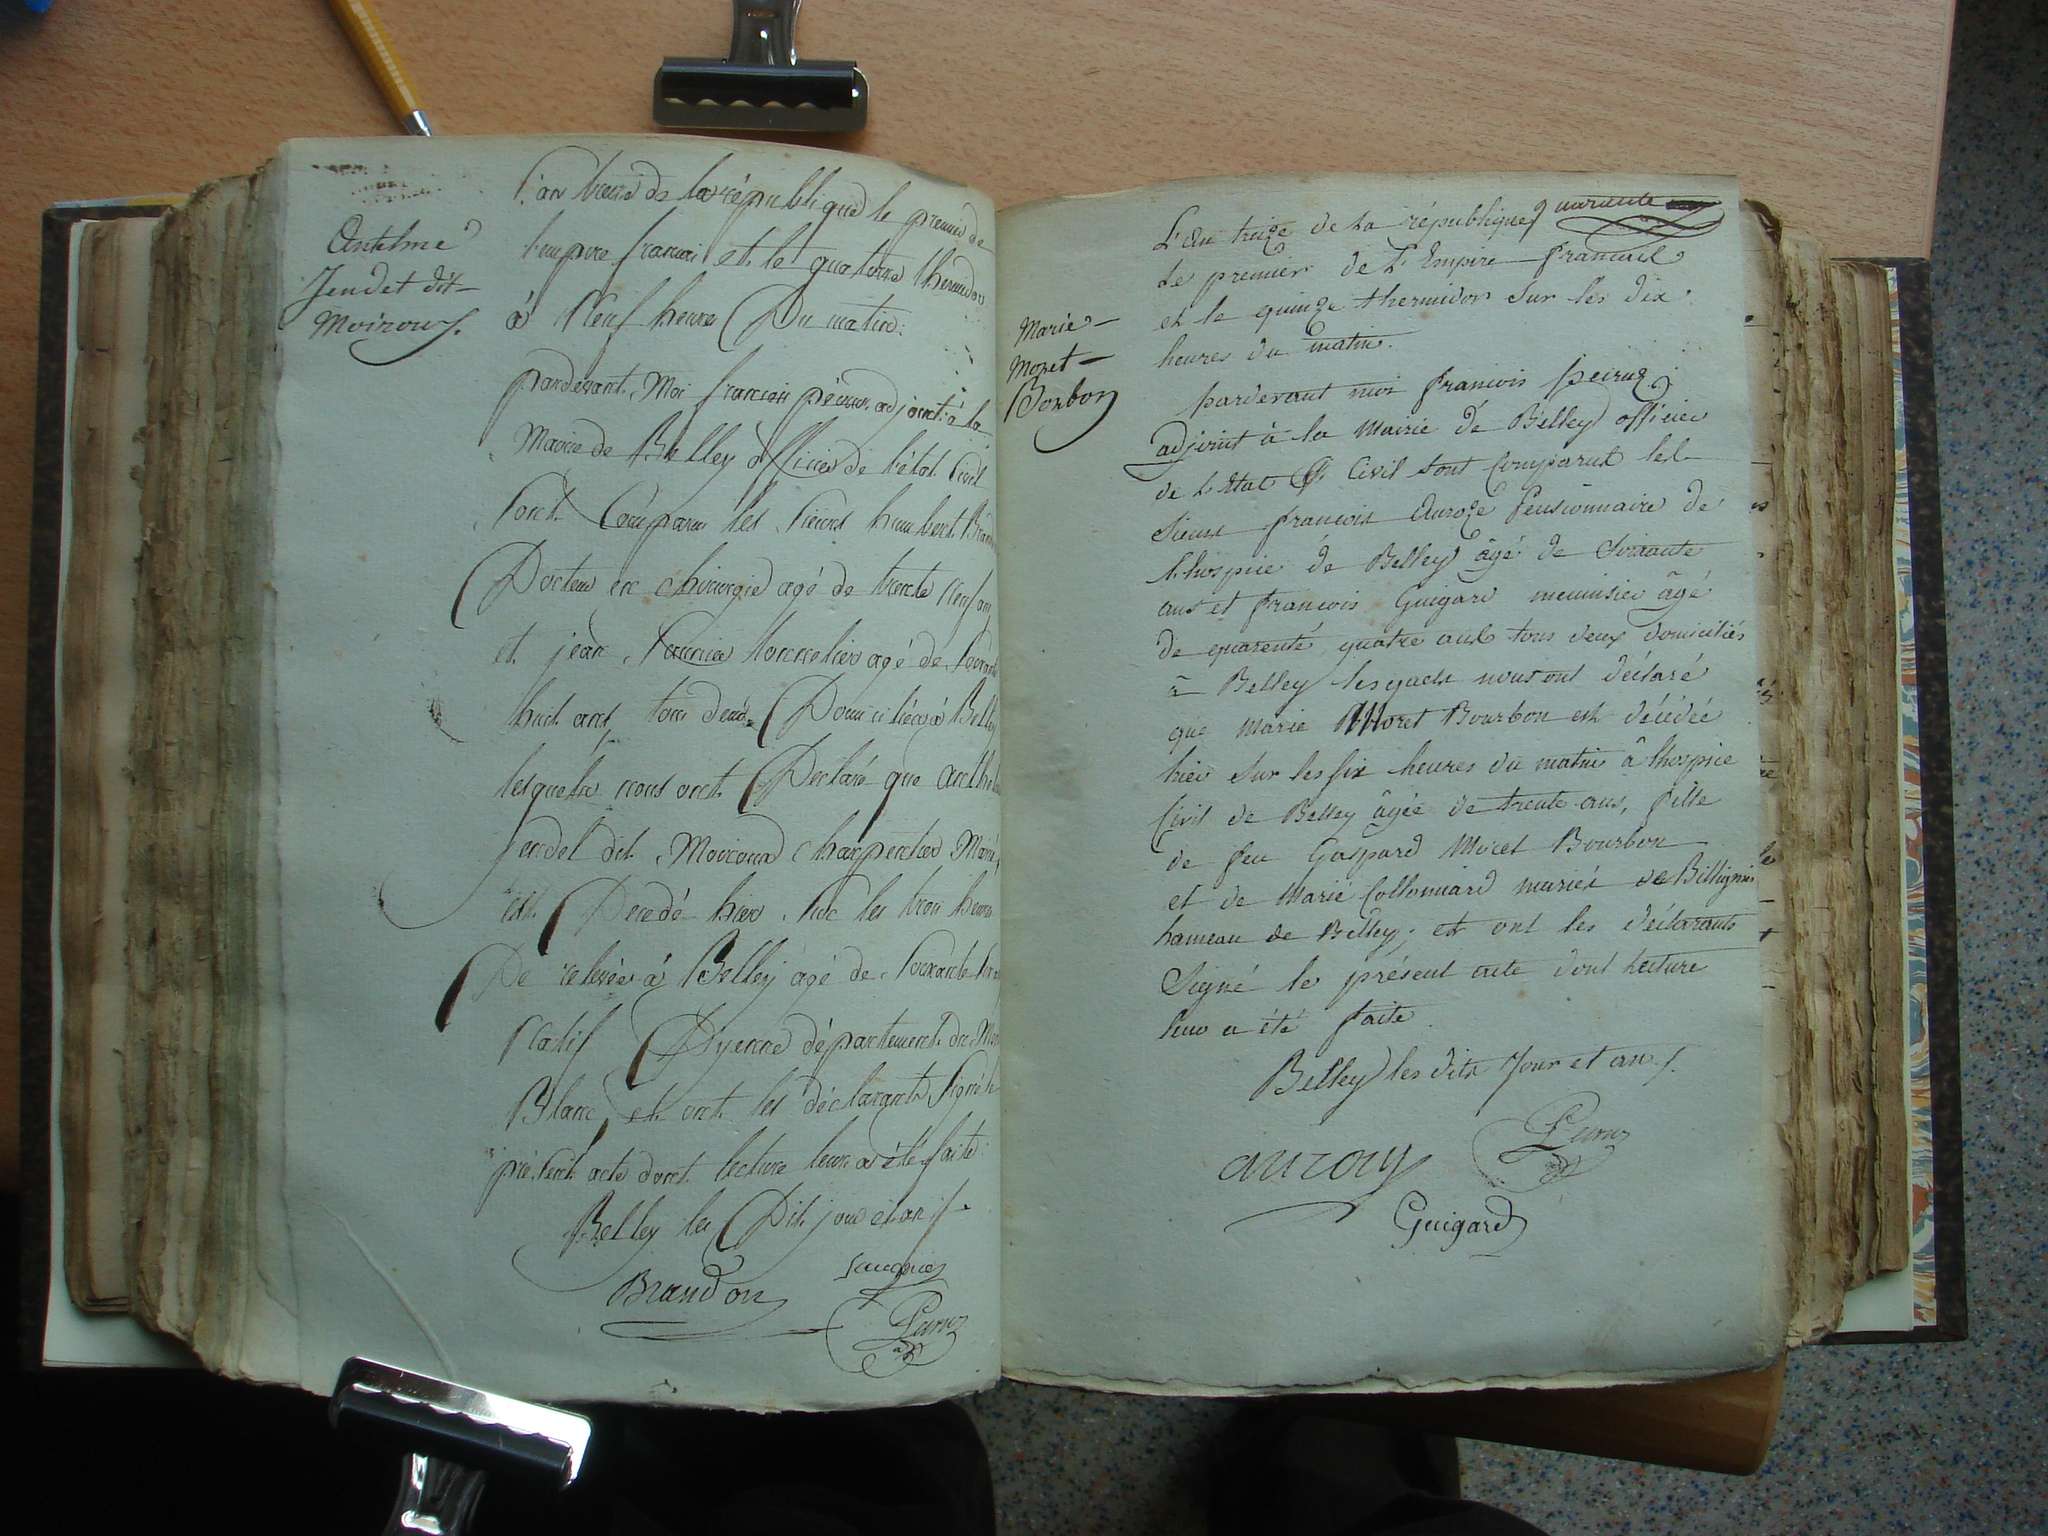 Anthelme
Jendet dit
Moiroux
L'an treize de la république le premier de
l'empire francais et le quatorze thermidor
à Neuf heures Du matin.
pardevant Moi francois péiruz adjoint à la
Mairie de Belley officier de l'état Civil
Sont Comparu les Sieurs humbert
Docteur en chirurgie agé de trente Neuf ans
et jean tonnelier agé de
huit ans, tous deux Domiciliés à Belley
lesquels nous ont Declaré que anthelme
jendet dit Moiroux charpentier
est Decedé hier Sur les trois heures
De relevée à Belley agé de Soixante
Natif Dyenne département du Mont
Blanc, et ont les déclarants Signé le
présent acte dont lecture leur a été faite.
Belley les Dit jour et an
Brandon
Peiruz
quarante
L'an treize de la république
Le premier de L'Empire francais
et le quinze thermidor Sur les dix
heures du matin.
Marie
Moret
Borbon
pardevant moi francois peiruz
adjoint à la Mairie de Belley officier
de L'Etat Civil sont Comparut les
Sieurs francois Auroze pensionnaire de
L'hospice de Belley âgé de Soixante
ans et francois Guigard menuisier âgé
de quarente quatre ans tous deux domiciliés
à Belley lesquels nous ont déclaré
que Marie Moret Bourbon est décédée
hier Sur les six heures du matin à lhospice
Civil de Belley âgée de trente ans, fille
de feu Gaspard Moret Bourbon
et de Marie Collomiard mariés de Billignin
hameau de Belley; et ont les déclarants
Signé le présent acte dont lecture
leur a été faite
Belley les dits Jour et an
auroy
Peiruz
Guigard